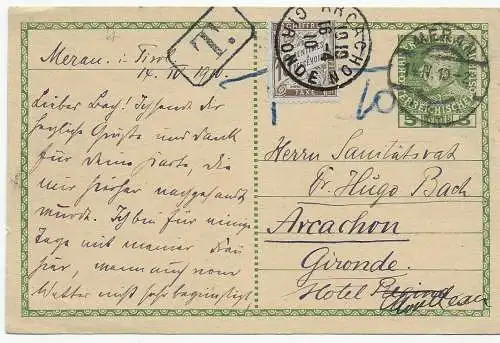 Meran i. Tirol
14. IV 1910.
Lieber Bach! Ich sende dir
herzliche Grüße und Dank
für deine Karte, die
mir hierher nachgesandt
wurde. Ich bin für einige
Tage mit meiner Frau
hier, wenn auch vom
Wetter nicht sehr begünstigt,
T.
CHIFFRE
TAXE
ARCACHON
16-4
10
GIRONDE
MERAN
14.IV.10
5
10
Herrn Sanitätsrat
Dr. Hugo Bach
Arcachon
Gironde.
Hotel